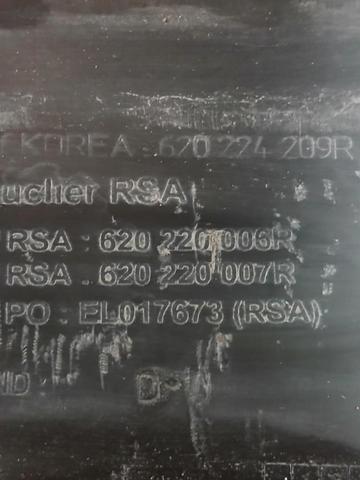 KOREA : 620 224 209R
uclier RSA
RSA : 620 220 006R
RSA : 620 220 007R
PO : EL017673 (RSA)
ND :